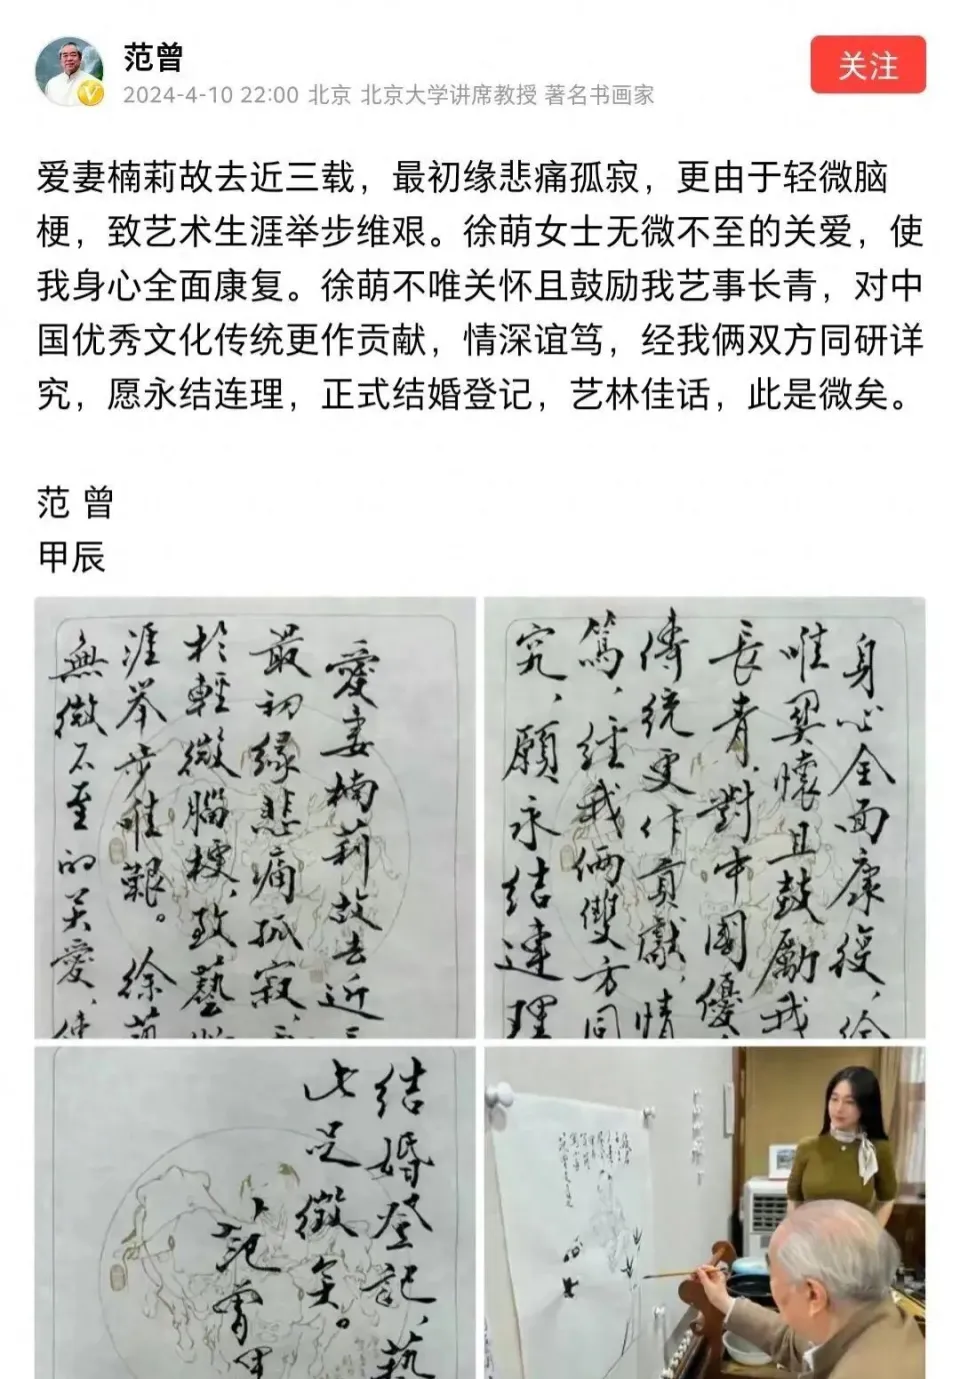 范曾
关注
2024-4-10 22:00 北京 北京大学讲席教授 著名书画家
爱妻楠莉故去近三载，最初缘悲痛孤寂，更由于轻微脑
梗，致艺术生涯举步维艰。徐萌女士无微不至的关爱，使
我身心全面康复。徐萌不唯关怀且鼓励我艺事长青，对中
国优秀文化传统更作贡献，情深谊笃，经我俩双方同研详
究，愿永结连理，正式结婚登记，艺林佳话，此是微矣。
范 曾
甲辰
愛妻楠莉故去近三
最初緣悲痛孤寂，
於輕微腦梗，致藝
涯举步维艱。徐萌
無微不至的关愛，使
身心全面康復，徐
唯関懷且鼓勵我
長青，對中國優
傳统更作貢獻，情
篤，经我俩雙方同
究，願永结連理
结婚登記，藝
此是微矣。
范曾甲